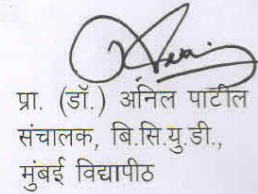 प्रा. (डॉ.) अनिल पाटील
संचालक, बि.सि.यु.डी.,
मुंबई विद्यापीठ